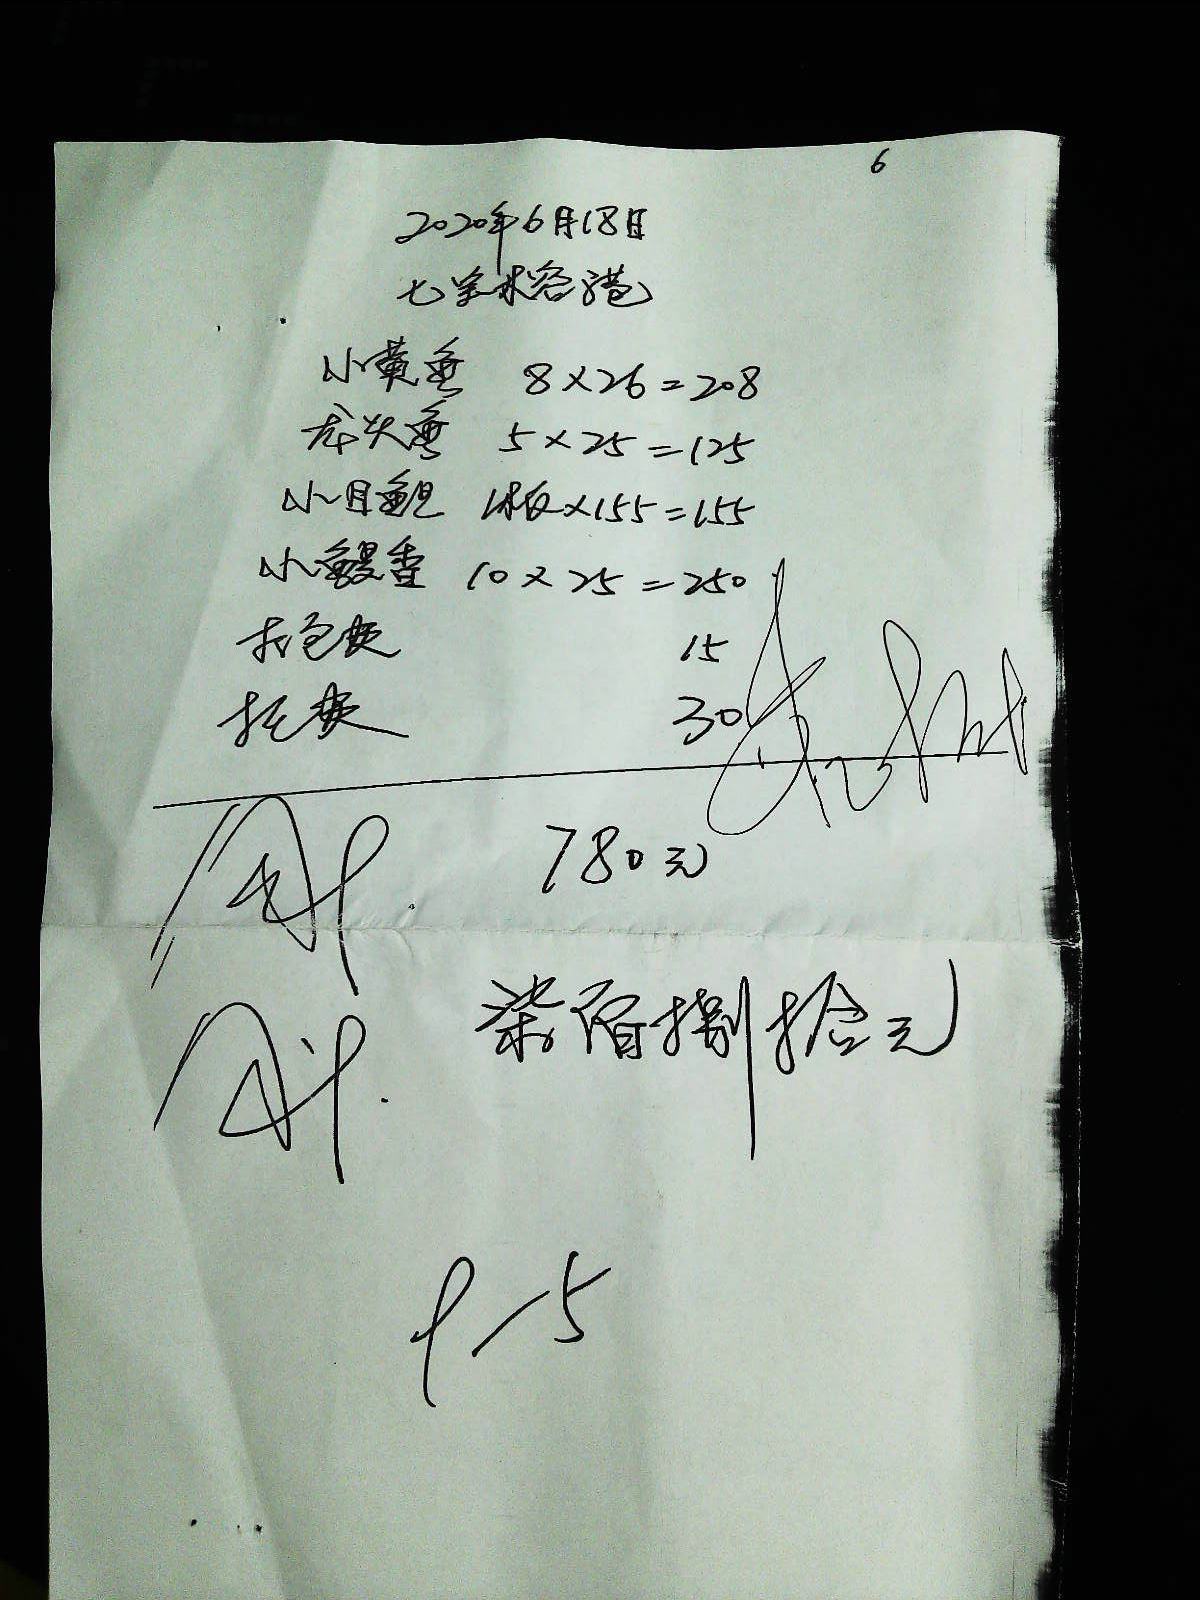 6
2020年6月18日
七宝水谷港
小黄鱼 8×26=208
龙头鱼 5×25=125
小目鲍 1板×155=155
小鳗香 10×25=250
打包费 15
托费 30
780元
柒佰捌拾元
9-5